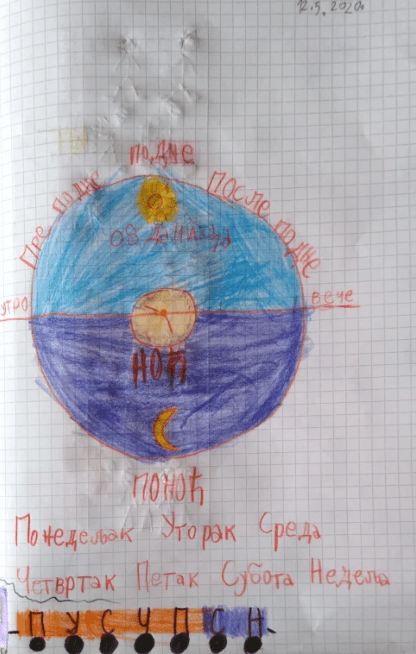 12.5.2020.
ПОДНЕ
ПРЕ ПОДНЕ
ПОСЛЕ ПОДНЕ
УТРО
ВЕЧЕ
НОЋ
ПОНОЋ
Понедељак Уторак Среда
Четвртак Петак Субота Недеља
П У С Ч П С Н